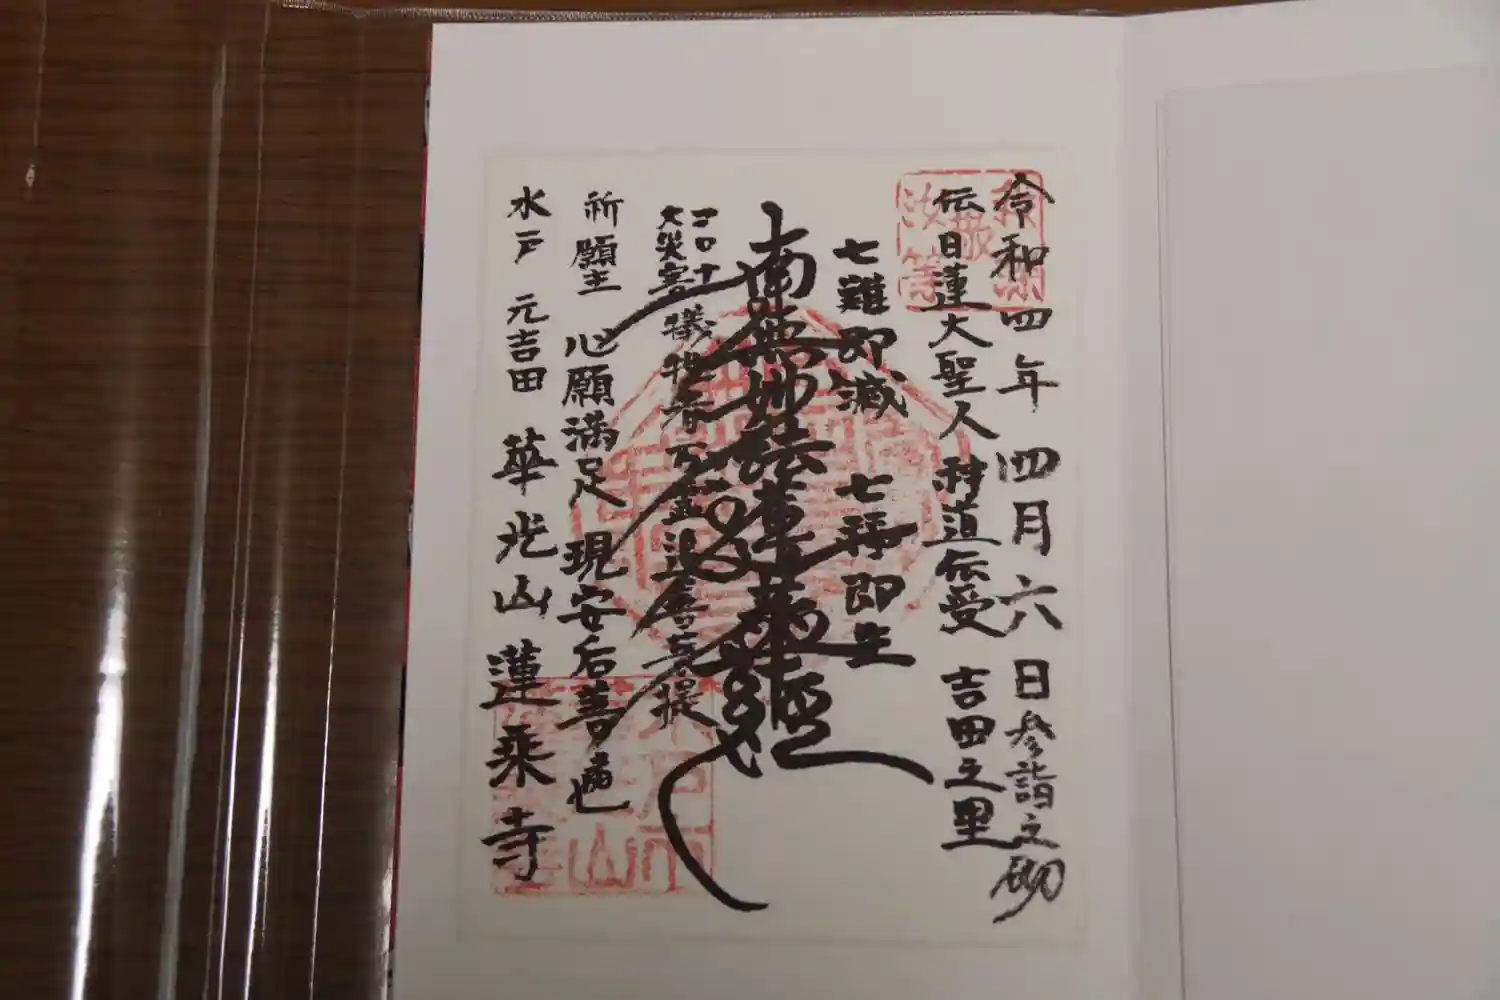 令和四年四月六日参詣之砌
伝日蓮大聖人 伝受 吉田之里
七難即滅 七福即生
南無妙法蓮華経
コロナ
大災害 犠牲者万霊追善菩提
祈願主 心願満足 現安后善
水戸 元吉田 華光山蓮乗寺